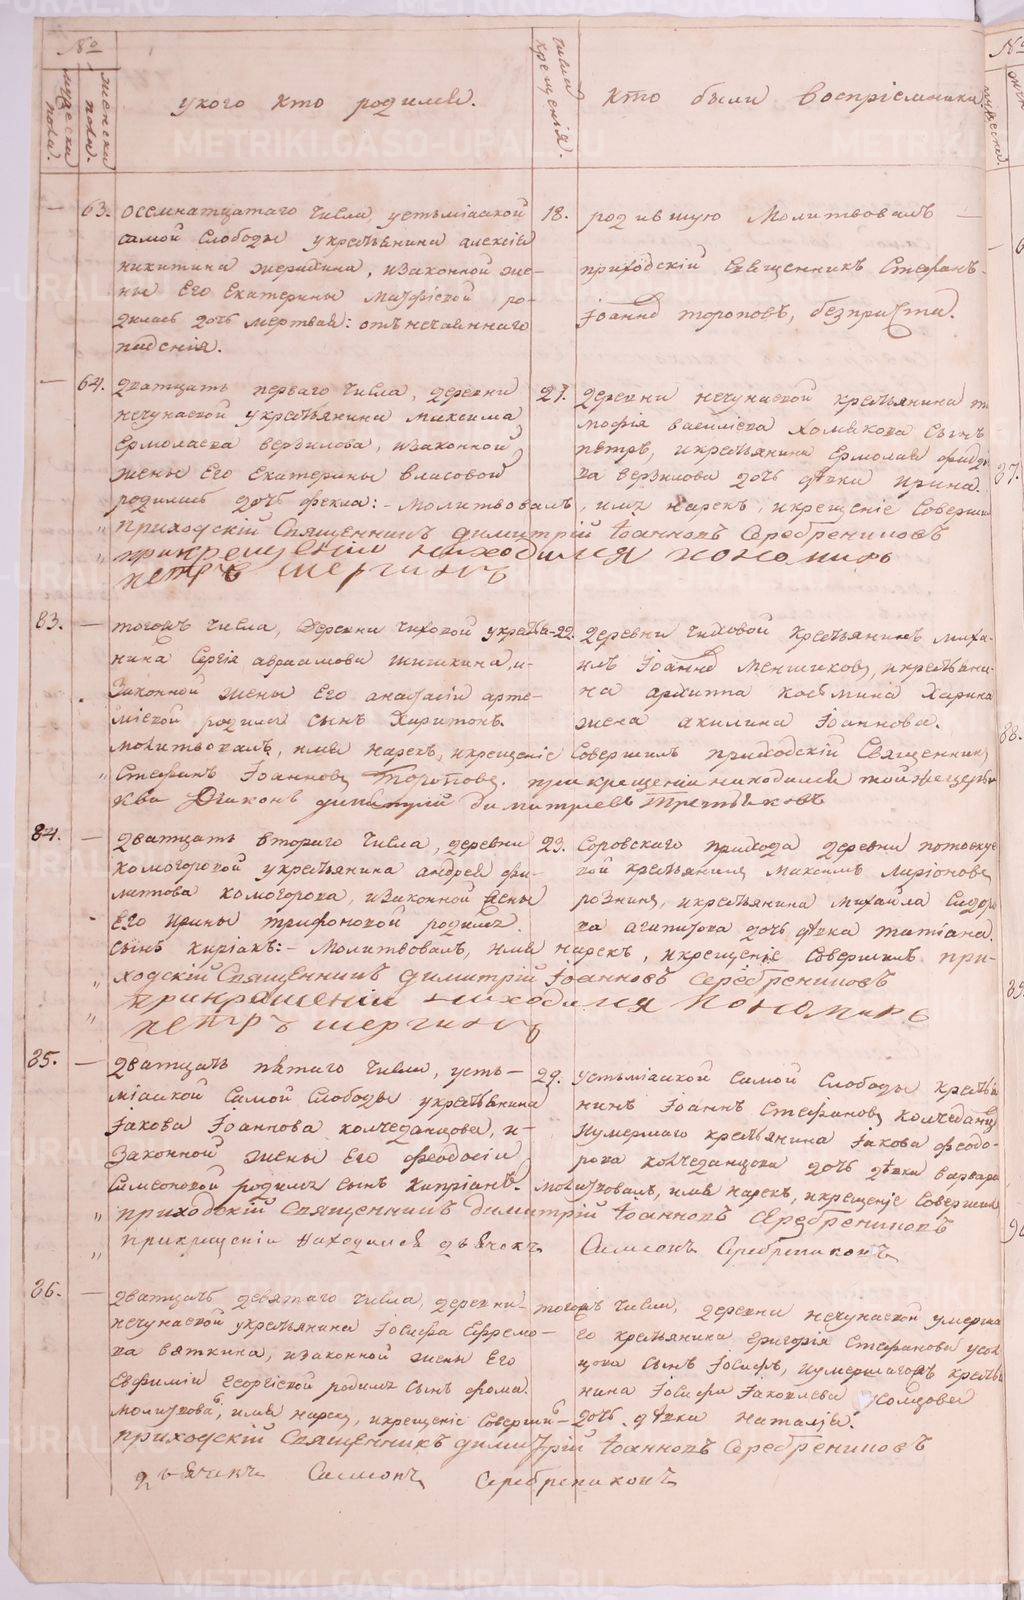 №
мужеска пола.
женска пола.
у кого кто родился.
числа крещенiя.
кто были воспрiемники.
63. осемнатцатаго числа, устьмiаской
самой слободы укрестьянина алексiя
никитина, изаконной же-
ны Его Екатерины Матфiевой ро-
дилась дочь мертвая: отъ нечаяннаго
падения.
18. родившую Молитвовалъ
приходскiй священникъ Стефанъ
Iоанновъ топоровъ, безпричта.
64. дватцать перваго числа, деревни
нечунаевой укрестьянина максима
Ермолаева верзилова, изаконной
жены Его Екатерины власовой
родилась дочь фекла: - молитвовалъ, имя нарекъ, икрещенiе совершилъ
27. деревни нечунаевой крестьянина ти
мофея василiева хомякова сынъ
петръ, икрестьянина Ермолая
ва верзилова дочь дѣвка ирина.
приходскiй Священникъ димитрiй Iоанновъ Серебрениковъ
прикрещенiи находился пономарь
петръ шергинъ
83. тогожъ числа, деревни чиховой укрестья-
нина Сергiя авраамова шишкина, и-
законной жены Его анастасiи арте-
мiевой родился сынъ Харитонъ.
22. деревни чиховой крестьянинъ миха-
илъ Iоанновъ Меншиковъ, икрестьяни-
на архиппа козьмина Харина
жена акилина Iоаннова.
молитвовалъ, имя нарекъ, икрещенiе совершилъ приходскiй священникъ
Стефанъ Iоанновъ Топоровъ. прикрещенiи находился тойжецерь
кви Дiаконъ димитрiй димитрiевъ третьяковъ
84. дватцать втораго числа, деревни
комогоровой укрестьянина андрея фи-
липпова комогорова, изаконной жены
Его ирины трифоновой родился
сынъ кирiакъ: - молитвовалъ, имя нарекъ, икрещенiе совершилъ при-
23. Соровскаго прихода деревни
вой крестьянинъ максимъ ларiоновъ
рознинъ, икрестьянина михайла Сидоро
ва агапитова дочь дѣвка татiана.
ходскiй Священникъ димитрiй Iоанновъ Серебрениковъ
прикращенiи находился пономарь
петръ шергинъ
85. дватцать пятаго числа, усть-
мiаской самой слободы укрестьянина
Iакова Iоаннова колчеданцова, и-
законной жены Его феодосiи
Симеоновой родился сынъ кипрiанъ. молитвовалъ, имя нарекъ, икрещенiе совершилъ
29. устьмiаской самой слободы крестья
нинъ Iоаннъ Стефановъ колчеданцовъ
иумершаго крестьянина Iакова феодо-
рова колчеданцова дочь дѣвка варвара
приходскiй священникъ димитрiй Iоанновъ Серебрениковъ
прикрещенiи находился дьячокъ Симеонъ Серебрениковъ
86. дватцать девятаго числа, деревни
нечунаевой укрестьянина Iосифа Ефремо-
ва вяткина, изаконной жены Его
Евфимiи георгiевой родился сынъ фома.
молитвовалъ, имя нарекъ, икрещенiе совершилъ
тогожъ числа, деревни нечунаевой умерша
го крестьянина григорiя Стефанова усол
цова сынъ Iосифъ, иумершагожъ крестья
нина Iосифа Iаковлева усолцова
дочь дѣвка наталiя.
приходскiй Священникъ димитрiй Iоанновъ Серебрениковъ
дьячокъ Симеонъ Серебрениковъ
87.
88.
METRIKI.GASO-URAL.RU